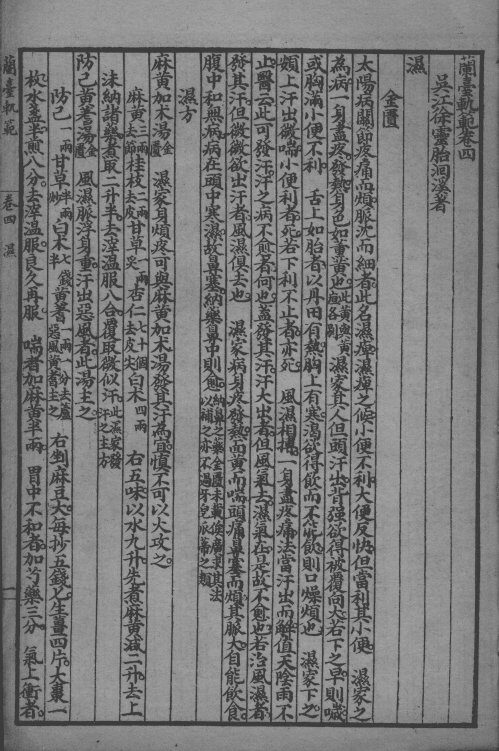 蘭臺軌範卷四
吳江徐靈胎洄溪著
濕
金匱
太陽病關節疼痛而煩脈沈而細者此名濕痺濕痺之候小便不利大便反快但當利其小便 濕家之
為病一身盡疼發熱身色如薰黃也此黃與黃疸各別 濕家其人但頭汗出背強欲得被覆向火若下之早則噦
或胸滿小便不利 舌上如胎者以丹田有熱胸上有寒渴欲得飲而不能飲則口燥煩也 濕家下之
額上汗出微喘小便利者死若下利不止者亦死 風濕相搏一身盡疼痛法當汗出而解值天陰雨不
止醫云此可發汗汗之病不愈者何也蓋發其汗汗大出者但風氣去濕氣在是故不愈也若治風濕者
發其汗但微微欲出汗者風濕俱去也 濕家病身疼發熱面黃而喘頭痛鼻塞而煩其脈大自能飲食
腹中和無病病在頭中寒濕故鼻塞納藥鼻中則愈納鼻之藥金匱未載後廣求其法以補之亦不過辛夷瓜蒂之類
濕方
麻黃加朮湯金匱 濕家身煩疼可與麻黃加朮湯發其汗為宜慎不可以火攻之
麻黃三兩去節桂枝二兩去皮甘草一兩炙杏仁七十個去皮尖白朮四兩 右五味以水九升先煮麻黃減二升去上
沫納諸藥煮取二升半去滓溫服八合覆取微似汗此濕家發汗之主方
防己黃耆湯金匱 風濕脈浮身重汗出惡風者此湯主之
防己一兩甘草半兩炒白朮七錢半黃耆一兩一分去蘆惡風黃耆主之 右剉麻豆大每抄五錢匕生薑四片大棗一
枚水盞半煎八分去滓溫服良久再服 喘者加麻黃半兩 胃中不和者加芍藥三分 氣上衝者
蘭臺軌範 卷四 濕 一